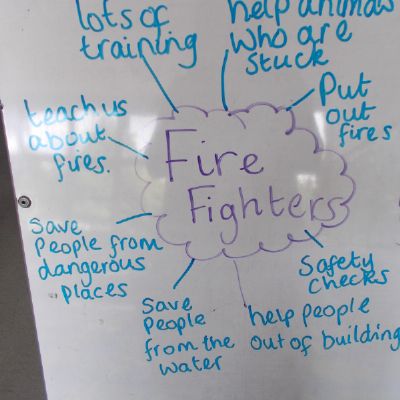 lots of
training
help animals
who are
stuck
Put
out
fires
teach us
about
fires.
Fire
Fighters
Save
People from
dangerous
places
Safety
checks
Save
People
from the
water
help people
out of building